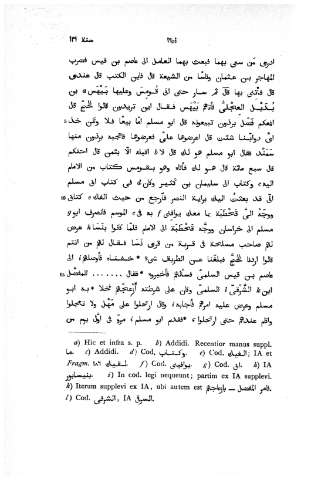 سنة ١٢٩ ١٩٦١
ادرى من سبى بهما فبعث بهما العامل الى عاصم بن قيس فضرب
المهاجر بن عثمان وناسًا من الشيعة قال فاين الكتب قال عندى
قال فأتنى بها قال ثم سار حتى اتى قومس وعليها بيهس بن
بُدَيل العجلى فأتاهم بيهس فقال اين تريدون قالوا الحج قال
افمعكم فضل برذون تبيعونه قال ابو مسلم امّا بيعًا فلا ولكن خذ
اىّ دوابّنا شئت قال اعرضوها علىّ فعرضوها فاعجبه برذون منها
سمند فقال ابو مسلم هو لك قال لا اقبله الّا بثمن قال احتكم
قال سبع مائة قال هو لك واتاه وهو بقومس كتاب من الامام
اليه وكتاب الى سليمان بن كثير وكان فى كتاب ابى مسلم
انى قد بعثت اليك براية النصر فارجع من حيث الفاك كتابى ١٠
ووجّه الىّ قحطبة بما معك يوافنى به فى الموسم فانصرف ابو
مسلم الى خراسان ووجّه قحطبة الى الامام فلمّا كانوا بنسا عرض
لهم صاحب مسلحة فى قرية من قرى نسا فقال لهم من انتم
قالوا اردنا الحج فبلغنا عن الطريق شىء خفناه فأوصلهم الى
عاصم بن قيس السلمى فسألهم فأخبروه فقال ..... للمفضّل ١٥
ابن الشرقى السلمى وكان على شرطته أزعجهم فخلا به ابو
مسلم وعرض عليه امرهم فأجابه وقال ارتحلوا على مهل ولا تعجلوا
واقام عندهم حتى ارتحلوا فقدم ابو مسلم مرو فى اوّل يوم من
a) Hic et infra s. p. b) Addidi. Recentior manus suppl.
ما. c) Addidi. d) Cod. وكتاب. e) Cod. الفيك; IA et
Fragm. ut لقيك. f) Cod. يوافينى. g) Cod. ابى. h) IA
بنيسابور. i) In cod. legi nequeunt; partim ex IA supplevi.
k) Iterum supplevi ex IA, ubi autem est
l) Cod. الشرقى, IA